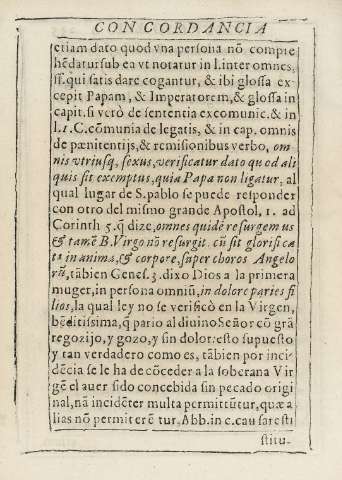 CONCORDANCIA
etiam dato quod vna persona nõ compre
hẽdatur sub ea vt notatur in l. inter omnes,
ff. qui satis dare cogantur, & ibi glossa ex
cepit Papam, & Imperatorem, & glossa in
capit. si verò de sententia excomunic. & in
l. 1. C. cõmunia de legatis, & in cap. omnis
de pænitentijs, & remisionibus verbo, om
nis vtriusq, sexus, verificatur dato quod ali
quis sit exemptus, quia Papa non ligatur, al
qual lugar de S. pablo se puede responder
con otro del mismo grande Apostol, 1. ad
Corinth 5. q̃ dize, omnes quidẽ resurgemus
& tamẽ B. Virgo nõ resurgit. cũ sit glorificata
ts in anima, & corpore, super choros Angelo
rũ, tãbien Genes. 3. dixo Dios a la primera
muger, in persona omniũ, in dolore paries fi
lios, la qual ley no se verificò en la Virgen,
bẽditissima, q̃ pario al diuino Señor cõ grã
regozijo, y gozo, y sin dolor: esto supuesto
y tan verdadero como es, tãbien por inci
dẽcia se le ha de cõceder a la soberana Vir
gẽ el auer sido concebida sin pecado origi
nal, nã incidẽter multa permittũtur, quæ a
lias nõ permitterẽtur, Abb. in c. cau saresti
stitu-